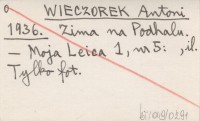 o WIECZOREK Antoni
1936. Zima na Podhalu.
= Moja Leica 1, nr 5: , il.
Tylko fot.